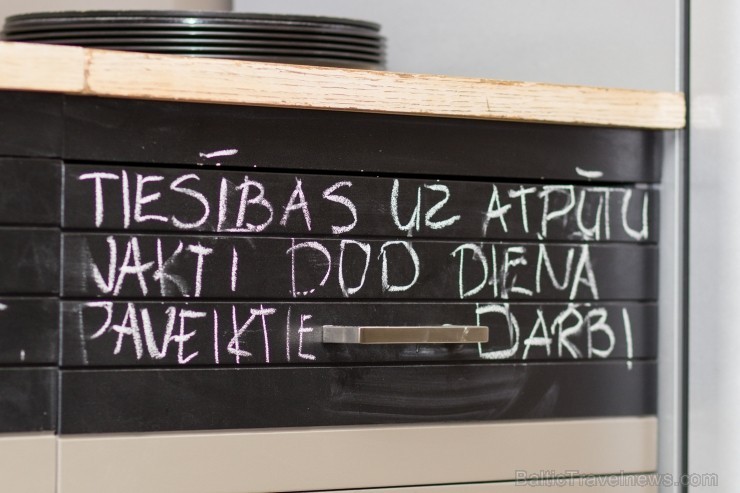 TIESĪBAS UZ ATPŪTU
JAKTI DOD DIENĀ
PAVEIKTIE DARBI
BalticTravelnews.com